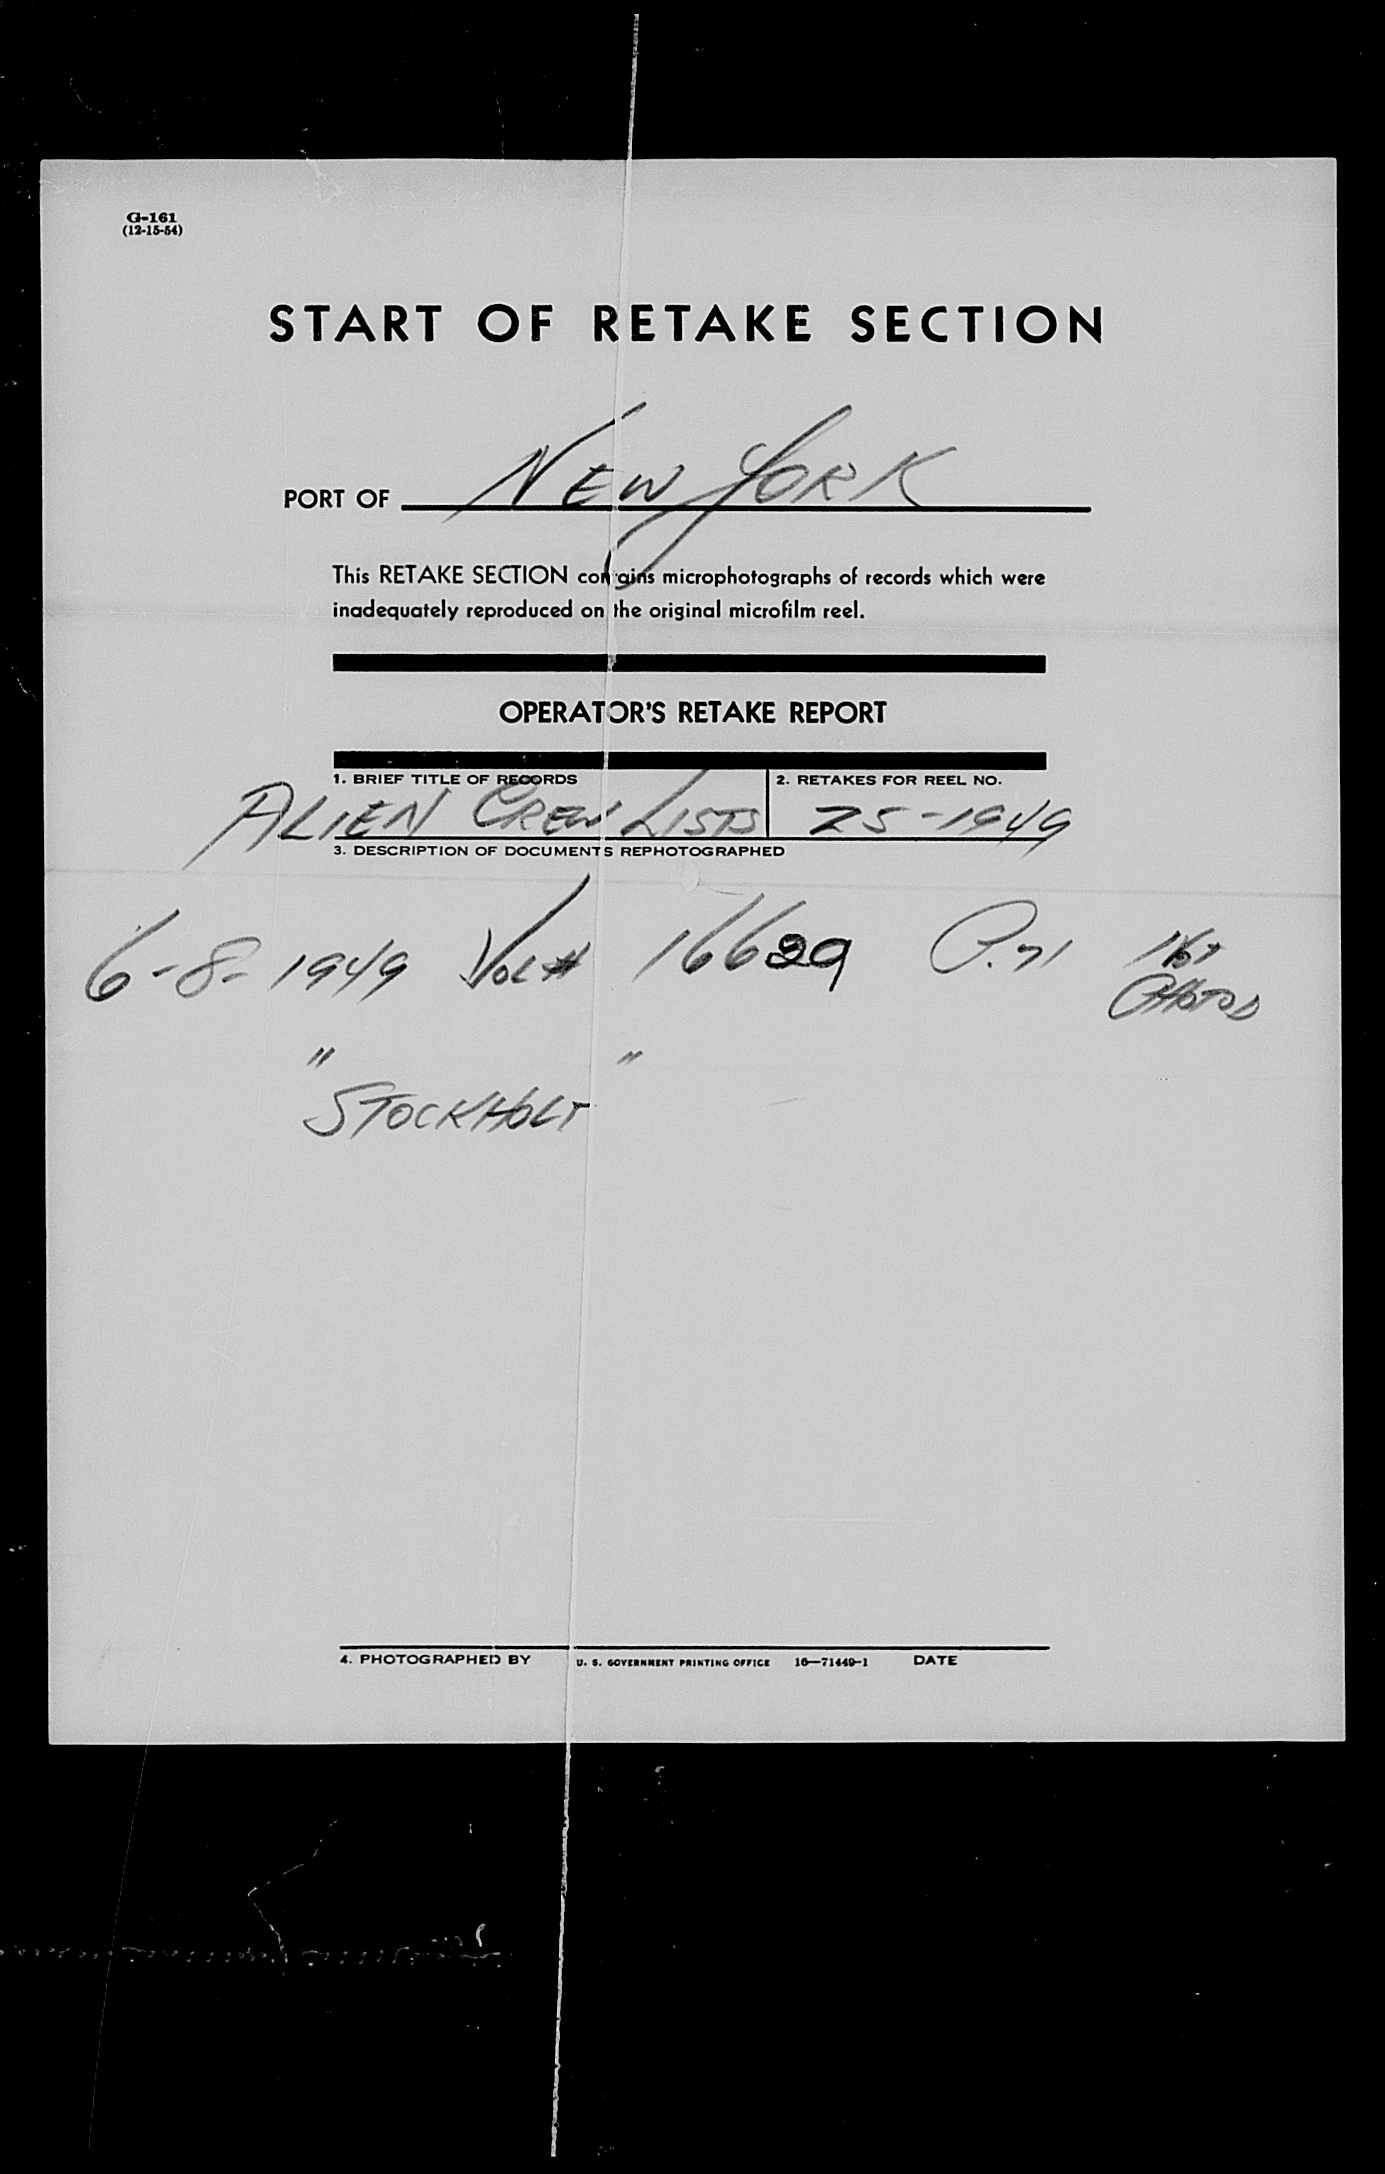 G-161
(12-15-54)
START OF RETAKE SECTION
PORT OF NEW YORK
This RETAKE SECTION contains microphotographs of records which were
inadequately reproduced on the original microfilm reel.
OPERATOR'S RETAKE REPORT
1. BRIEF TITLE OF RECORDS 2. RETAKES FOR REEL NO.
ALIEN CREW LISTS 25-1949
3. DESCRIPTION OF DOCUMENTS REPHOTOGRAPHED
6-8-1949 VOL# 16629 P.71
PHOTOS
"STOCKHOLT"
4. PHOTOGRAPHED BY U. S. GOVERNMENT PRINTING OFFICE 16—71449-1 DATE